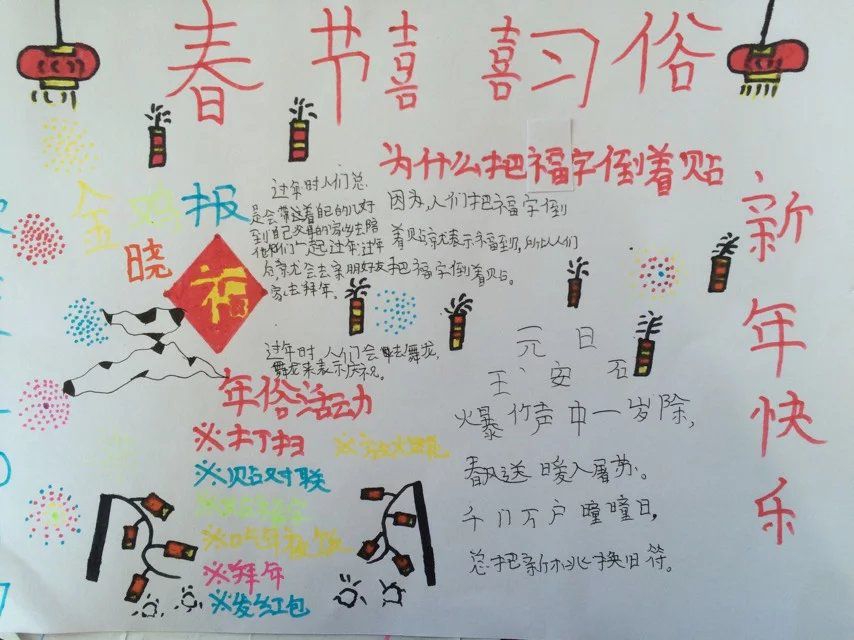 春节喜喜习俗
为什么把福字倒着贴
新年快乐
金鸡报
晓
福
过年时人们总
是会带这着自己的儿好
到自己父母的家陪
他们一起过年,过年
后就会去亲朋好友
家去拜年。
因为,人们把福字倒
着贴就表示福到了,所以人们
把福字倒着贴。
过年时,人们会去舞龙,
舞龙来表示庆祝。
年俗活动
※打扫
※放火花
※贴对联
※吃年夜饭
※拜年
※发红包
元日
王安石
火爆竹声中一岁除,
春风送暖入屠苏。
千门万户瞳瞳日,
总把新桃换旧符。